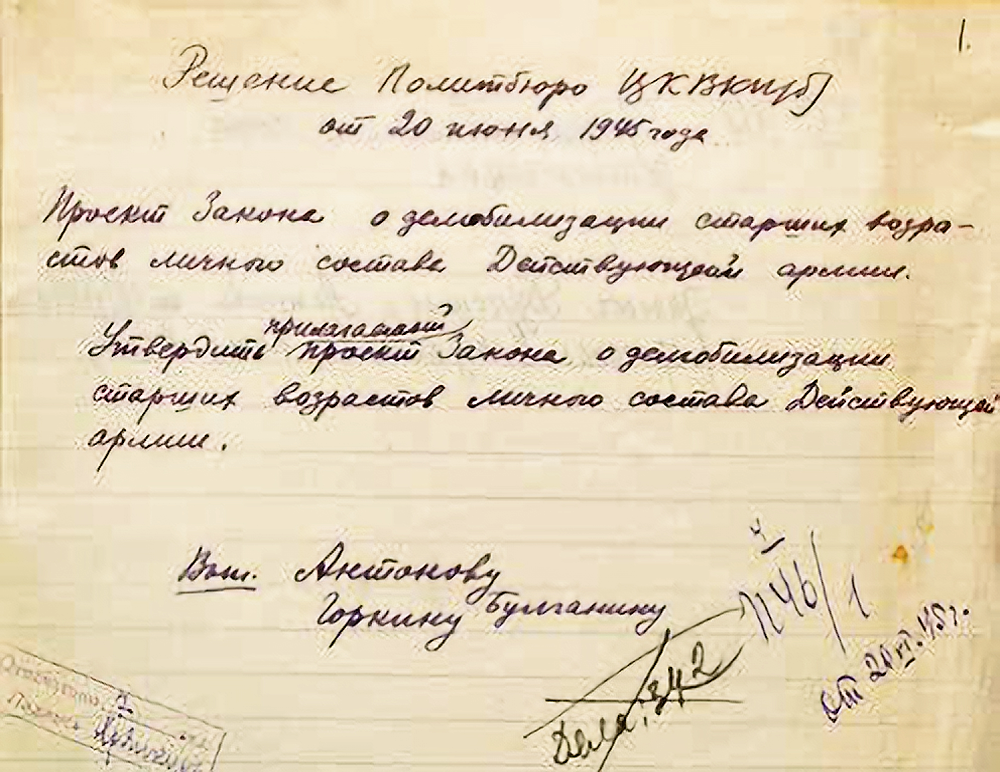 1.
Решение Политбюро ЦК ВКП(б)
от 20 июня 1945 года
Проект Закона о демобилизации старших возра-
стов личного состава Действующей армии.
прилагаемый
Утвердить проект Закона о демобилизации
старших возрастов личного состава Действующей
армии.
Вып. Антонову
Горкину Булганину
П46/1
от 20.VI.45г.
Дела: 342